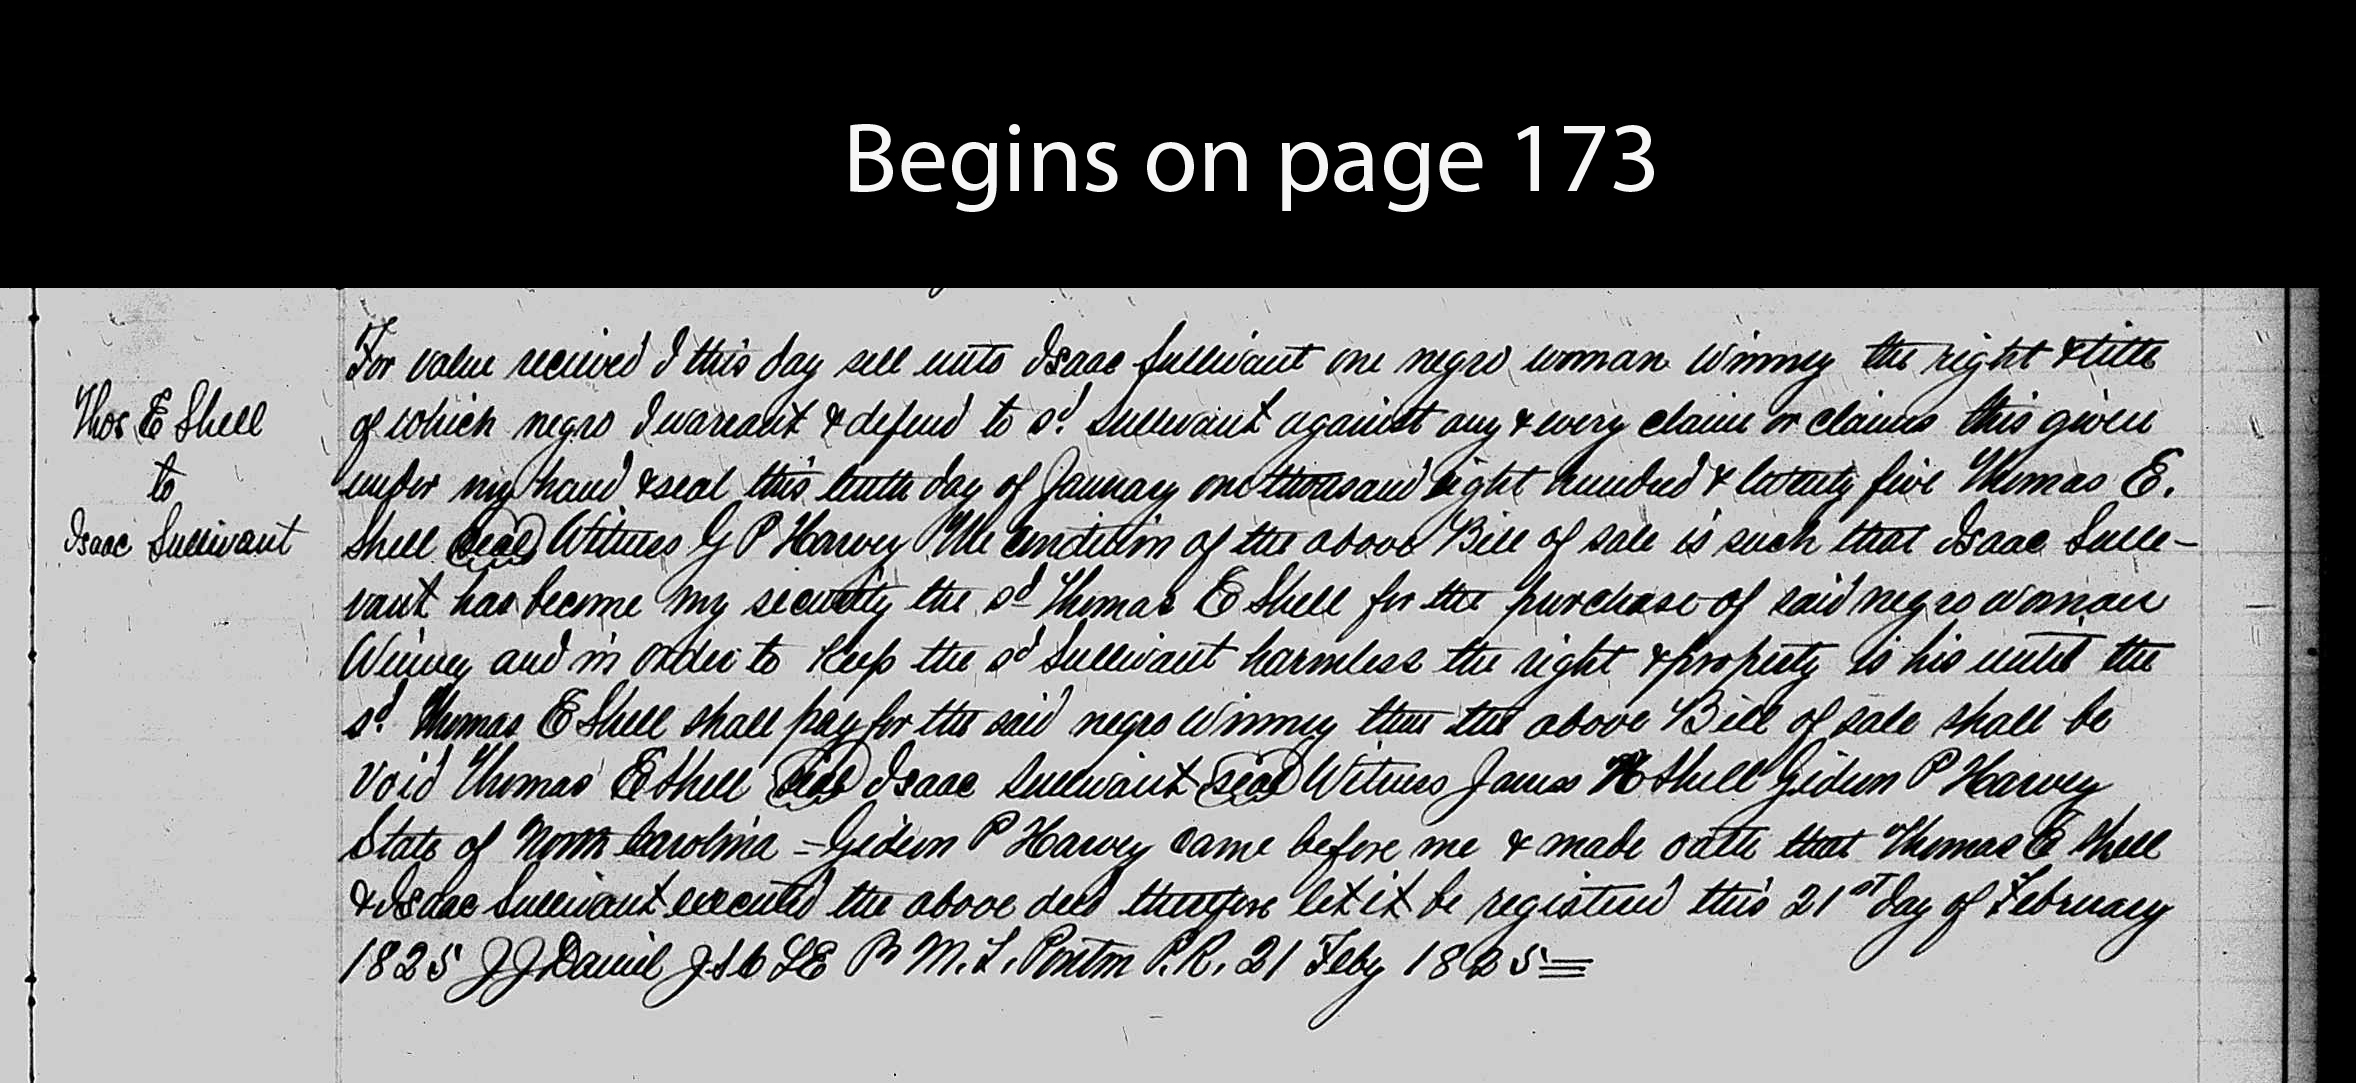 Begins on page 173
Thos E Shell
to
Isaac Sullivant
For value received I this day sell unto Isaac Sullivant one negro woman Winney the right & title
of which negro I warrant & defend to sd. Sullivant against any & every claim or claims this given
under my hand & seal this tenth day of January one thousand eight hundred & twenty five Thomas E.
Shell seal Witness G P Harvey The Condition of the above Bill of sale is such that Isaac Sulli-
vant has become my security the sd Thomas E Shell for the purchase of said negro woman
Winney and in order to keep the sd Sullivant harmless the right & property is his until the
sd. Thomas E Shell shall pay for the said negro Winney then the above Bill of sale shall be
void Thomas E Shell seal Isaac Sullivant seal Witness James H Shell Gideon P Harvey
State of North Carolina = Gideon P Harvey came before me & made oath that Thomas E Shell
& Isaac Sullivant executed the above deed therefore let it be registered this 21st day of February
1825 J J Daniel J S C L E M. L. Ponton P. R. 21 Feby 1825